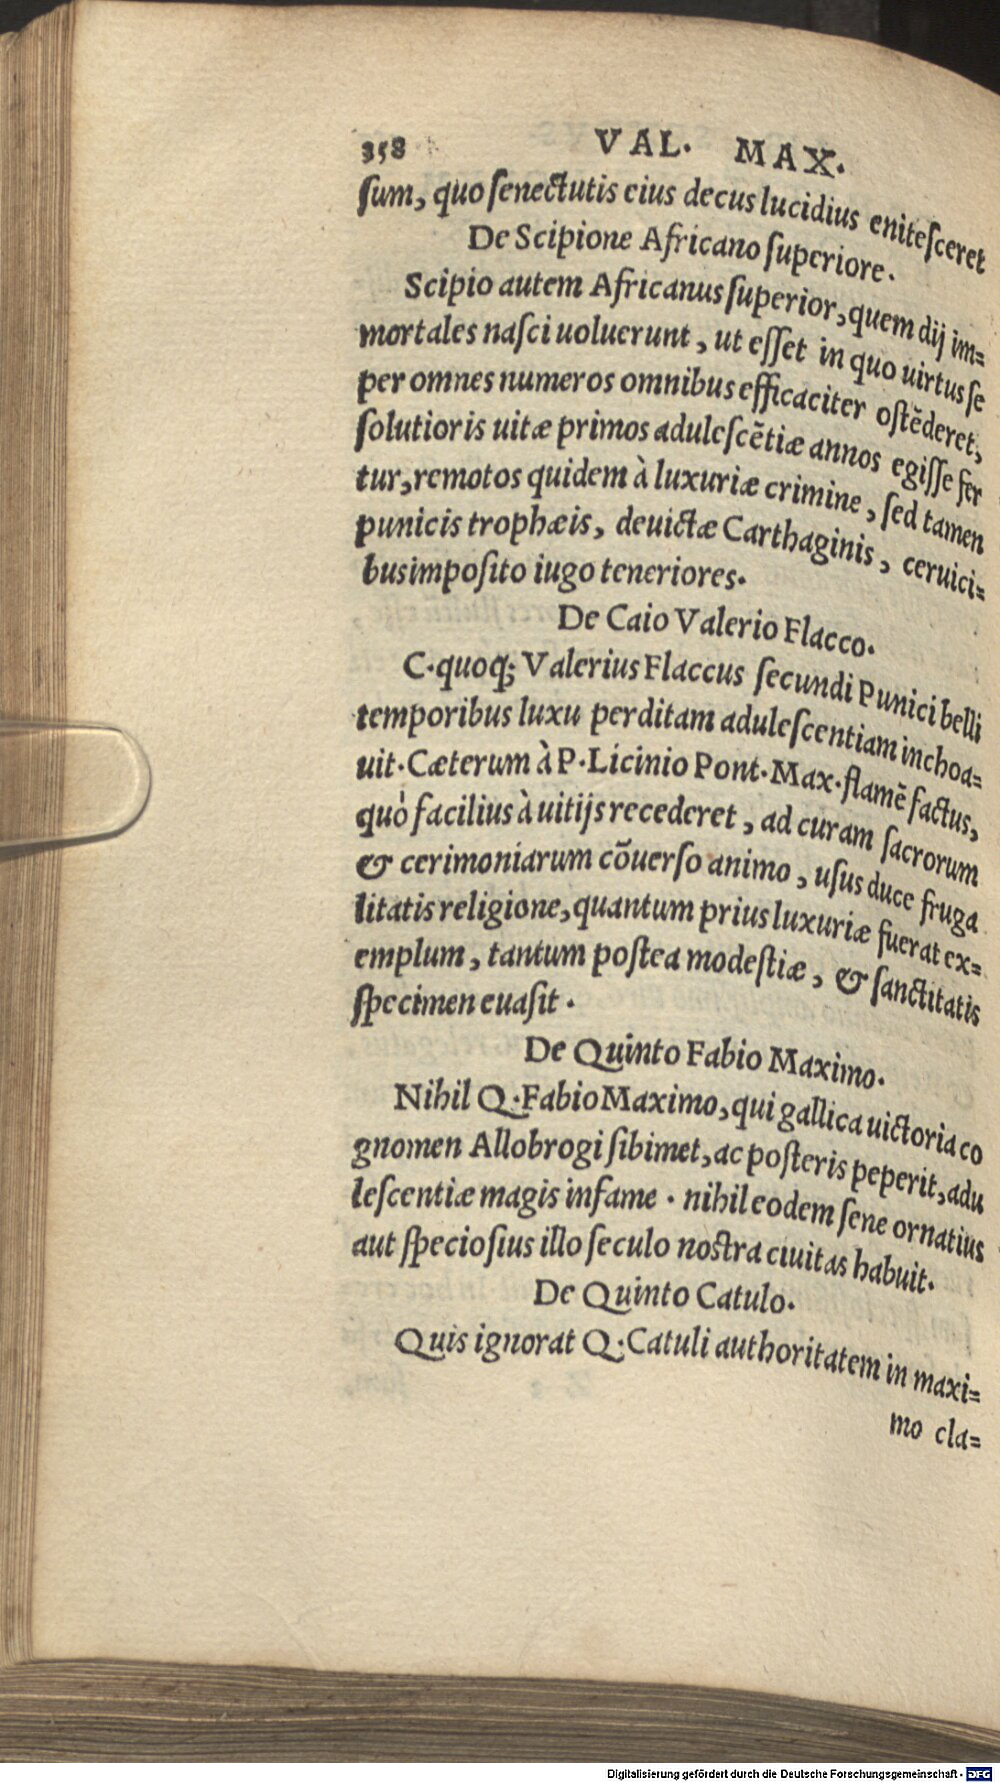 358 VAL. MAX.
ſum, quo ſenectutis eius decus lucidius eniteſceret
De Scipione Africano ſuperiore.
Scipio autem Africanus ſuperior, quem dij im=
mortales naſci uoluerunt, ut eſſet in quo uirtus ſe
per omnes numeros omnibus efficaciter oſtēderet,
ſolutioris uitæ primos aduleſcētiæ annos egiſſe fer
tur, remotos quidem à luxuriæ crimine, ſed tamen
punicis trophæis, deuictæ Carthaginis, ceruici=
bus impoſito iugo teneriores.
De Caio Valerio Flacco.
C. quoq; Valerius Flaccus ſecundi Punici belli
temporibus luxu perditam aduleſcentiam inchoa=
uit. Cæterum à P. Licinio Pont. Max. flamē factus,
quò facilius à uitijs recederet, ad curam ſacrorum
& cerimoniarum cōuerſo animo, uſus duce fruga
litatis religione, quantum prius luxuriæ fuerat ex=
emplum, tantum poſtea modeſtiæ, & ſanctitatis
ſpecimen euaſit.
De Quinto Fabio Maximo.
Nihil Q. Fabio Maximo, qui gallica uictoria co
gnomen Allobrogi ſibimet, ac poſteris peperit, adu
leſcentiæ magis infame. nihil eodem ſene ornatius
aut ſpecioſius illo ſeculo noſtra ciuitas habuit.
De Quinto Catulo.
Quis ignorat Q. Catuli authoritatem in maxi=
mo cla=
Digitalisierung gefördert durch die Deutsche Forschungsgemeinschaft - DFG